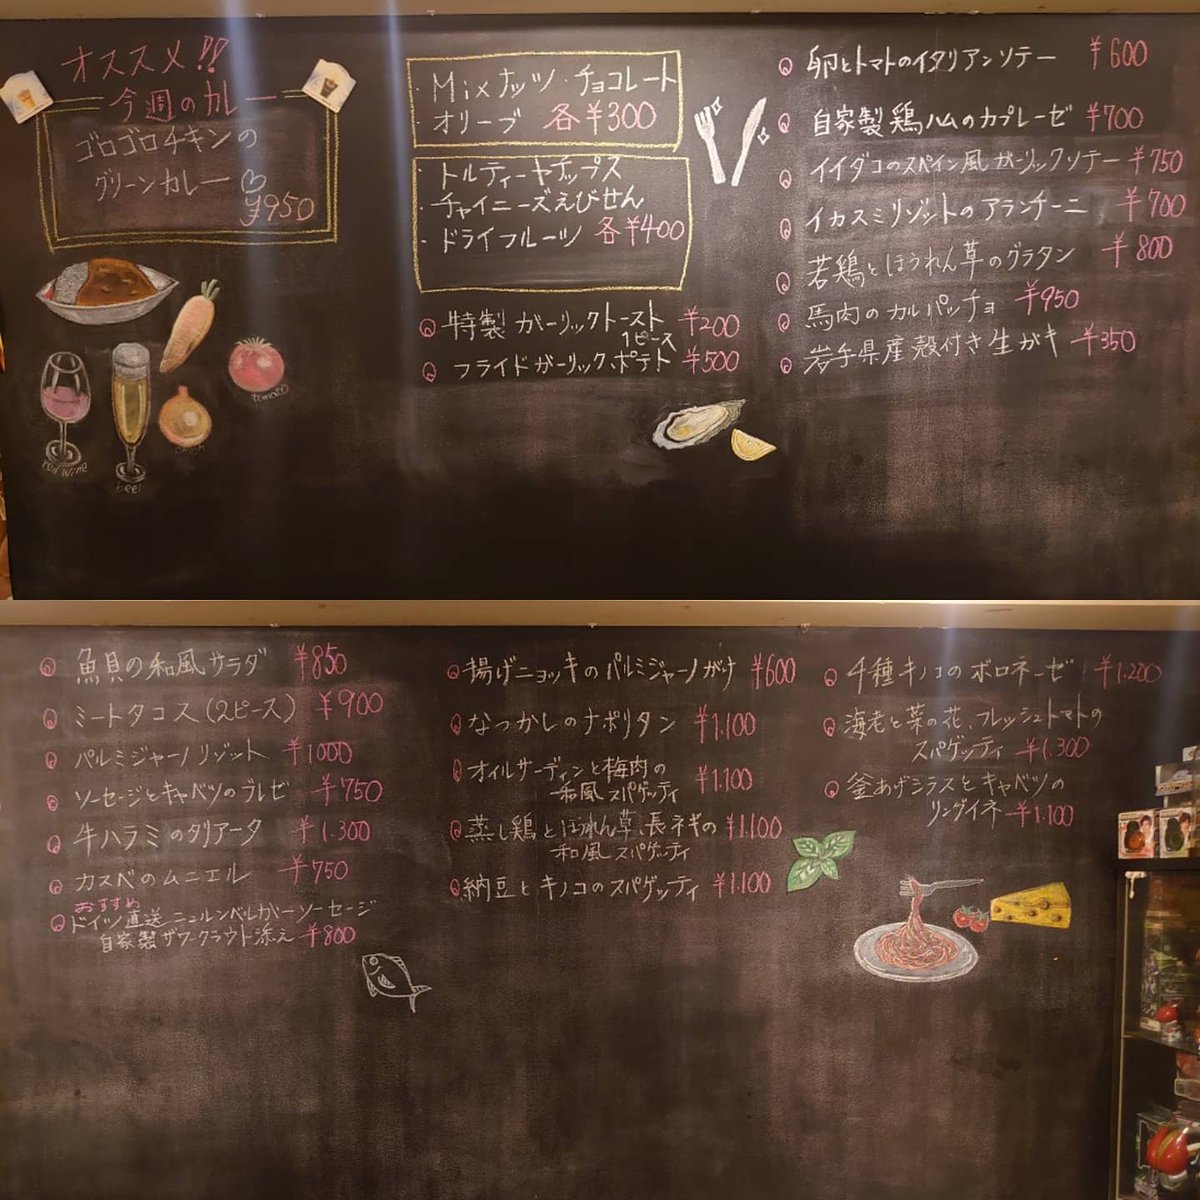 オススメ!!
今週のカレー
ゴロゴロチキンの
グリーンカレー♡
¥950
red wine
beer
tomato
・Mixナッツ・チョコレート
・オリーブ 各¥300
・トルティーヤチップス
・チャイニーズえびせん
・ドライフルーツ 各¥400
特製ガーリックトースト ¥200
1ピース
フライドガーリックポテト ¥500
卵とトマトのイタリアンソテー ¥600
自家製鶏ハムのカプレーゼ ¥700
イイダコのスペイン風ガーリックソテー ¥750
イカスミリゾットのアランチーニ ¥700
若鶏とほうれん草のグラタン ¥800
馬肉のカルパッチョ ¥950
岩手県産殻付き生ガキ ¥350
魚貝の和風サラダ ¥850
ミートタコス(2ピース) ¥900
パルミジャーノリゾット ¥1000
ソーセージとキャベツのブレゼ ¥750
牛ハラミのタリアータ ¥1.300
カスベのムニエル ¥750
おすすめ
ドイツ直送ニュルンベルガーソーセージ
自家製ザワークラウト添え ¥800
揚げニョッキのパルミジャーノがけ ¥600
なつかしのナポリタン ¥1.100
オイルサーディンと梅肉の
和風スパゲッティ ¥1.100
蒸し鶏とほうれん草、長ネギの ¥1.100
和風スパゲッティ
納豆とキノコのスパゲッティ ¥1.100
4種キノコのボロネーゼ ¥1.200
海老と菜の花、フレッシュトマトの
スパゲッティ ¥1.300
釜あげシラスとキャベツの
リングイネ ¥1.100